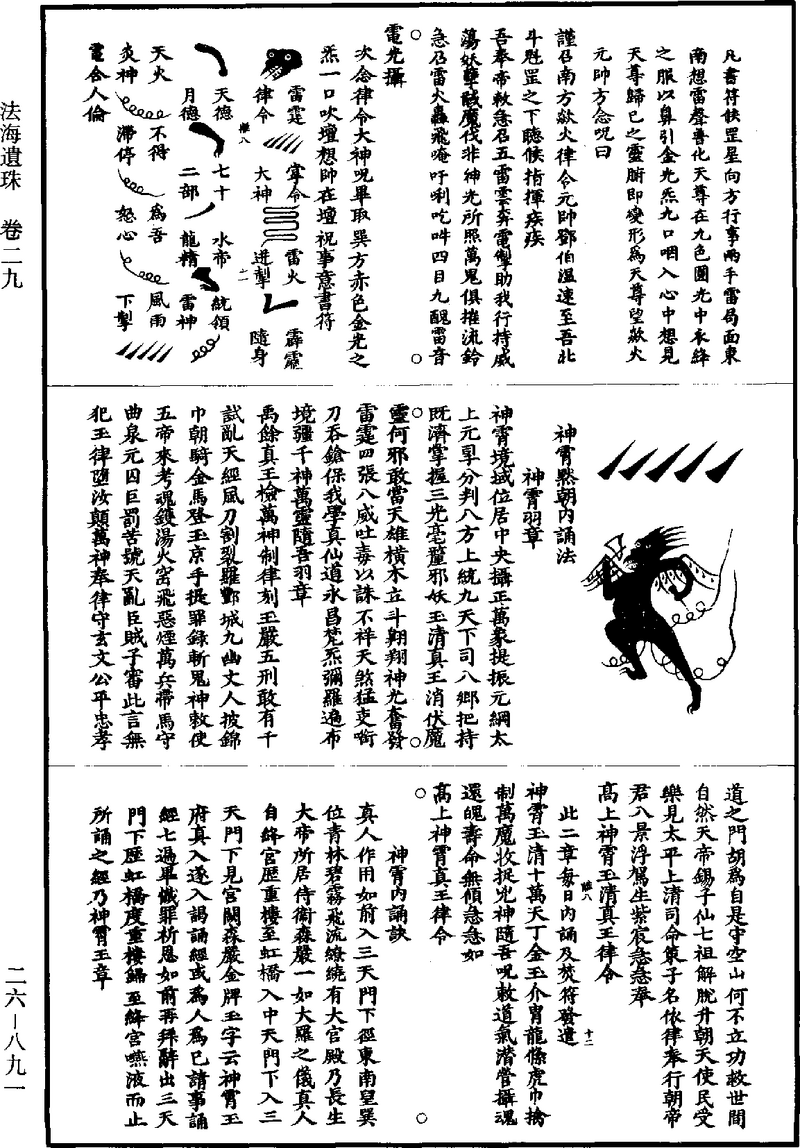 法海遺珠 卷二九
二六—八九一
凡書符躡罡星向方行事兩手雷局面東
南想雷聲普化天尊在九色圓光中衣絳
之服以鼻引金光炁九口咽入心中想見
天尊歸已之靈腑即變形為天尊望歘火
元帥方念呪曰
謹召南方歘火律令元帥鄧伯溫速至吾北
斗魁罡之下聽候指揮疾疾
吾奉帝敕急召五雷雲奔電掣助我行持威
蕩妖孽馘魔伐非紳光所照萬鬼俱摧流鈴
急召雷火轟飛唵吁唎吃吽四目九醜雷音
電光攝
次念律令大神呪畢取巽方赤色金光之
炁一口吹壇想帥在壇祝事意書符
雷霆 寧令 雷火 霹靂
律令 大神 迸掣 隨身
離八 一
天德 七十 水帝 統領
月德 二部 龍精 雷神
天火 不得 為吾 風雨
炎神 滯停 怒心 下掣
電合人倫
神霄黙朝內誦法
神霄羽章
神霄境域位居中央攝正萬象提振元綱太
上元皐分判八方上統九天下司八鄉把持
既濟掌握三光毫釐邪妖玉清真王消伏魔
靈何邪敢當天雄橫木立斗翱翔神光奮發
雷霆四張八威吐毒以誅不祥天煞猛吏衘
刀吞鎗保我學真仙道永昌梵炁彌羅遍布
境疆千神萬靈隨吾羽章
禹餘真王檢萬神制律刻玉嚴五刑敢有千
試亂天經風刀劄裂羅酆城九幽丈人披錦
巾朝騎金馬登玉京手提罪錄斬鬼神敕使
五帝來考魂鑊湯火窑飛惡煙萬兵帶馬守
曲泉元囚巨罰苦號天亂臣賊子審此言無
犯玉律墮汝顛萬神奉律守玄文公平忠孝
道之門胡為自是守空山何不立功救世間
自然天帝錫子仙七祖解脫升朝天使民受
樂見太平上清司命策子名依律奉行朝帝
君八景浮駕生紫宸急急奉
高上神霄玉清真王律令
離八 十二
此二章每日內誦及焚符發遣
神霄玉清十萬天丁金玉介冑龍絛虎巾擒
制萬魔收捉兇神隨吾呪敕道氣潛營攝魂
還魄壽命無傾急急如
高上神霄真王律令
神霄內誦訣
真人作用如前入三天門下徑東南望巽
位青林碧霧飛流繚繞有大宮殿乃長生
大帝所居侍衞森嚴一如大羅之儀真人
自絳宮歷重樓至虹橋入中天門下入三
天門下見宮闕森嚴金牌玉字云神霄玉
府真入遂入謁誦經或為人為已請事誦
經七過畢懺罪祈恩如前再拜辭出三天
門下歷虹橋度重樓歸至絳宮嚥液而止
所誦之經乃神霄玉章